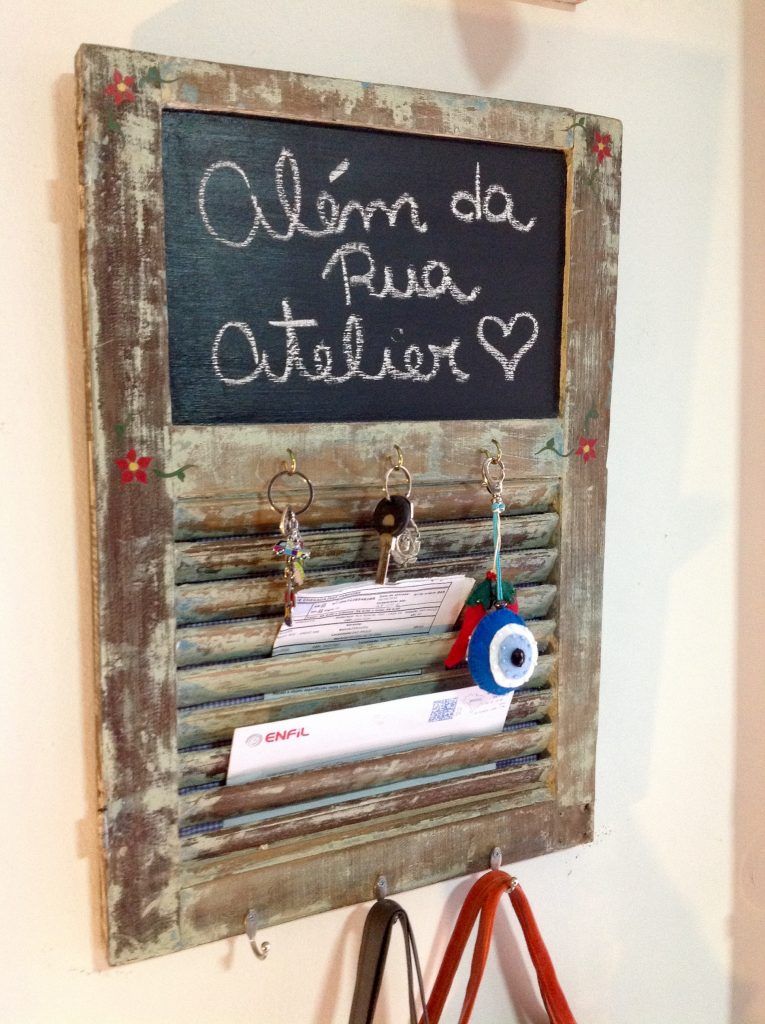 Além da
Rua
Atelier
ENFiL